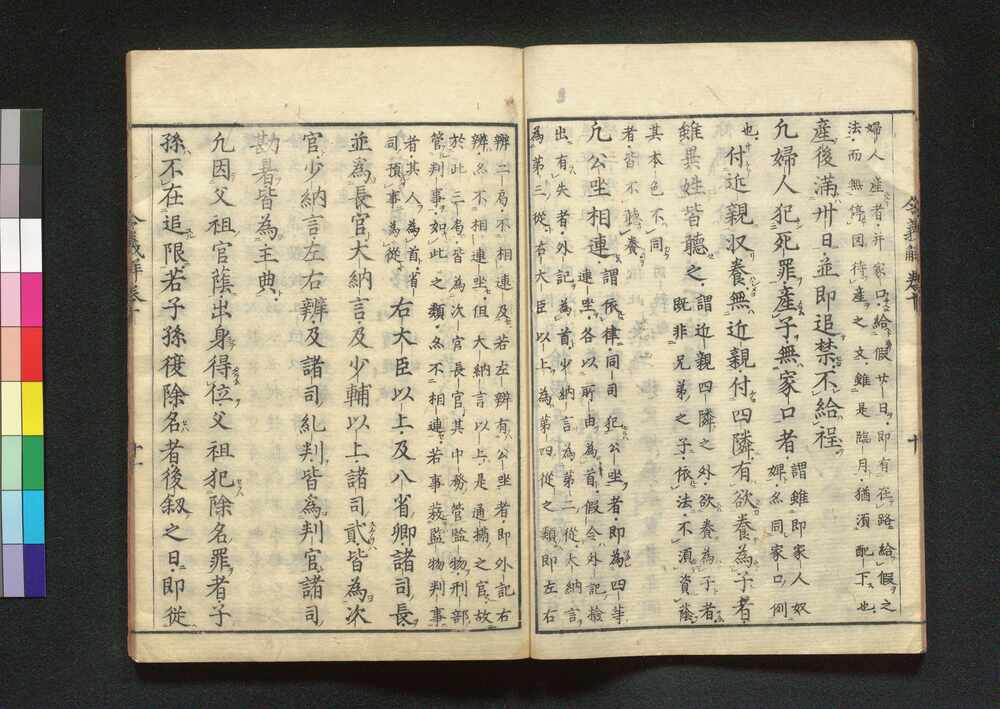 婦人産者并家口給假廿日即有在路給假之
法而無停囚待産之文雖是臨月猶須配下也
産後滿卅日並即追禁不給程
凢婦人犯死罪産子無家口者謂雖即家人奴
婢亦同家口例
也付近親収養無近親付四隣有欲養為子者
雖異姓皆聽之謂近親四隣之外欲養為子者
既非兄弟之子依法不須資蔭
其本色不同
者皆不聽養
凢公坐相連謂依律同司犯公坐者即為四等
連坐各以所由為首假令外記撿
出有失者外記為首少納言為第二從大納言
為第三從右大臣以上為第四從之類即左右
辨二局不相連及若左辨有公坐者即外記右
辨亦不相連坐但大納言以上是通攝之官故
於此三局皆為次官長官其中務管監物刑部
管判事如此之類亦不相連若事葢監物判事
者其人為首省
司預事為從右大臣以上及八省卿諸司長
並為長官大納言及少輔以上諸司貳皆為次
官少納言左右辨及諸司糺判皆為判官諸司
勘署皆為主典
凢因父祖官蔭出身得位父祖犯除名罪者子
孫不在追限若子孫復除名者後叙之日即從
令義解卷十
十一